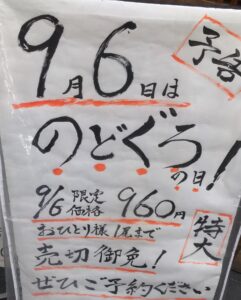 予告
9月6日は
のどぐろの日!
9/6 限定価格 960円
特大
おひとり様1尾まで
売切御免!
ぜひご予約ください